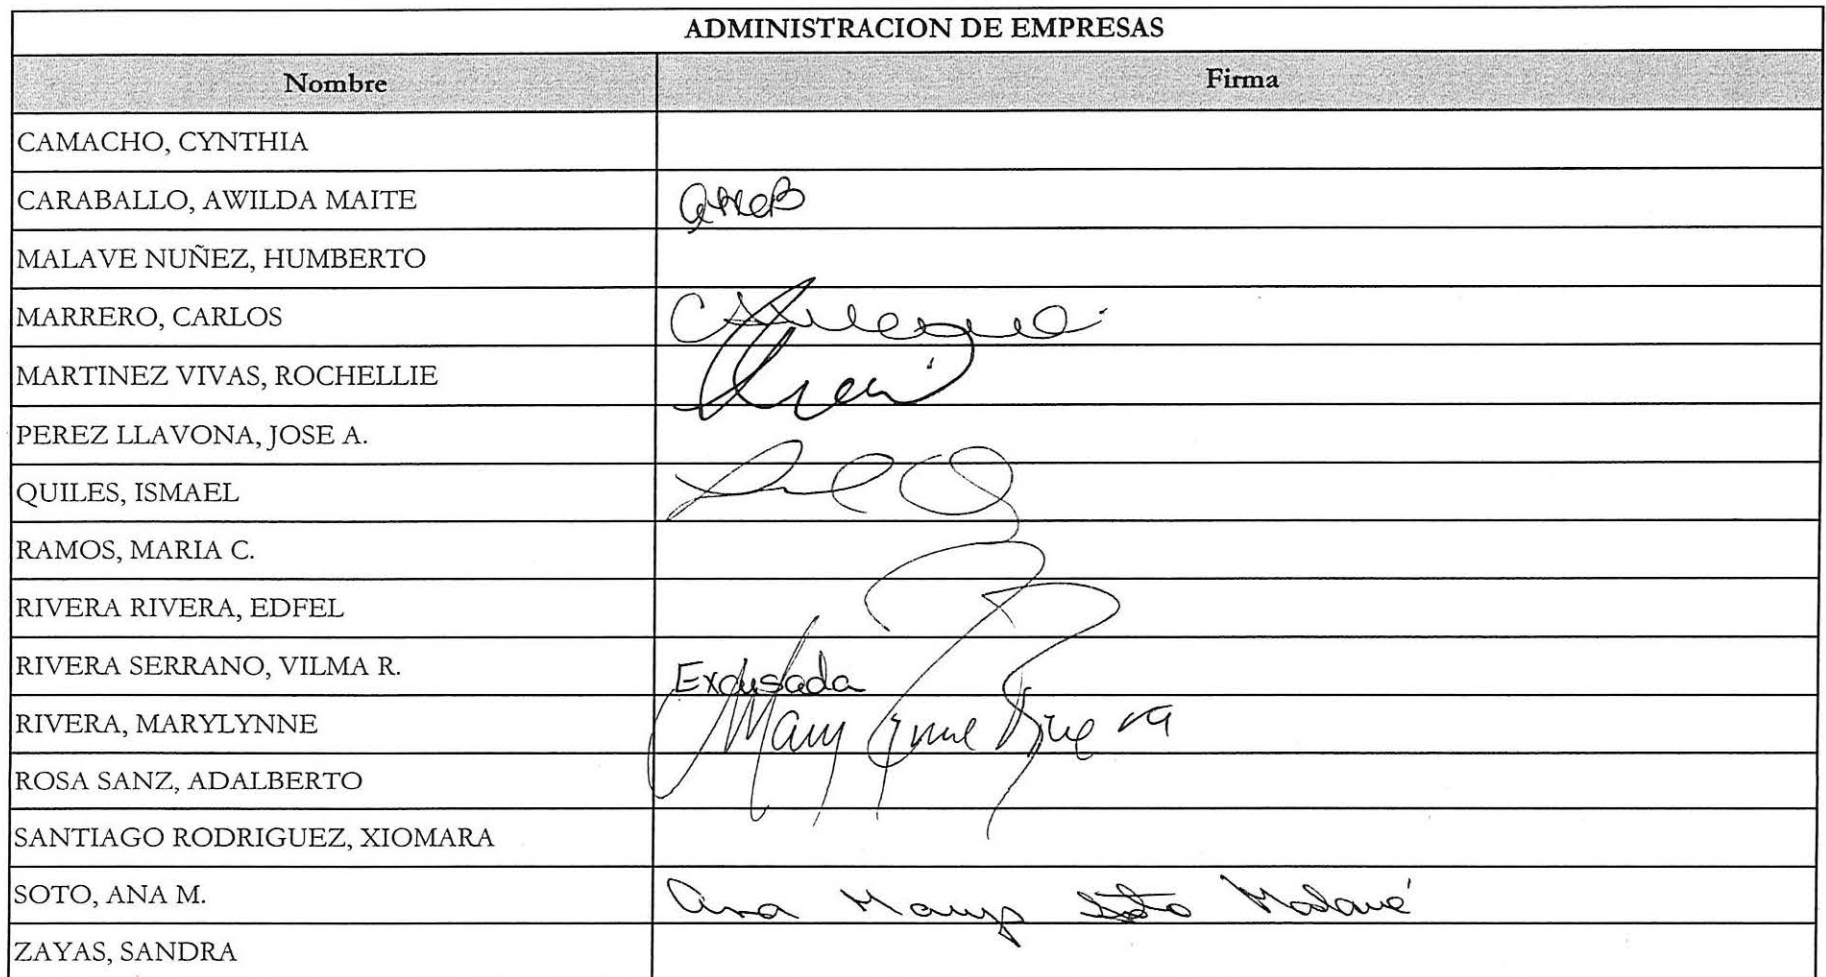 ADMINISTRACION DE EMPRESAS
Nombre Firma
CAMACHO, CYNTHIA
CARABALLO, AWILDA MAITE
MALAVE NUÑEZ, HUMBERTO
MARRERO, CARLOS
MARTINEZ VIVAS, ROCHELLIE
PEREZ LLAVONA, JOSE A.
QUILES, ISMAEL
RAMOS, MARIA C.
RIVERA RIVERA, EDFEL
RIVERA SERRANO, VILMA R. Excusada
RIVERA, MARYLYNNE Mary Lynne Rivera
ROSA SANZ, ADALBERTO
SANTIAGO RODRIGUEZ, XIOMARA
SOTO, ANA M. Ana Soto Malavé
ZAYAS, SANDRA